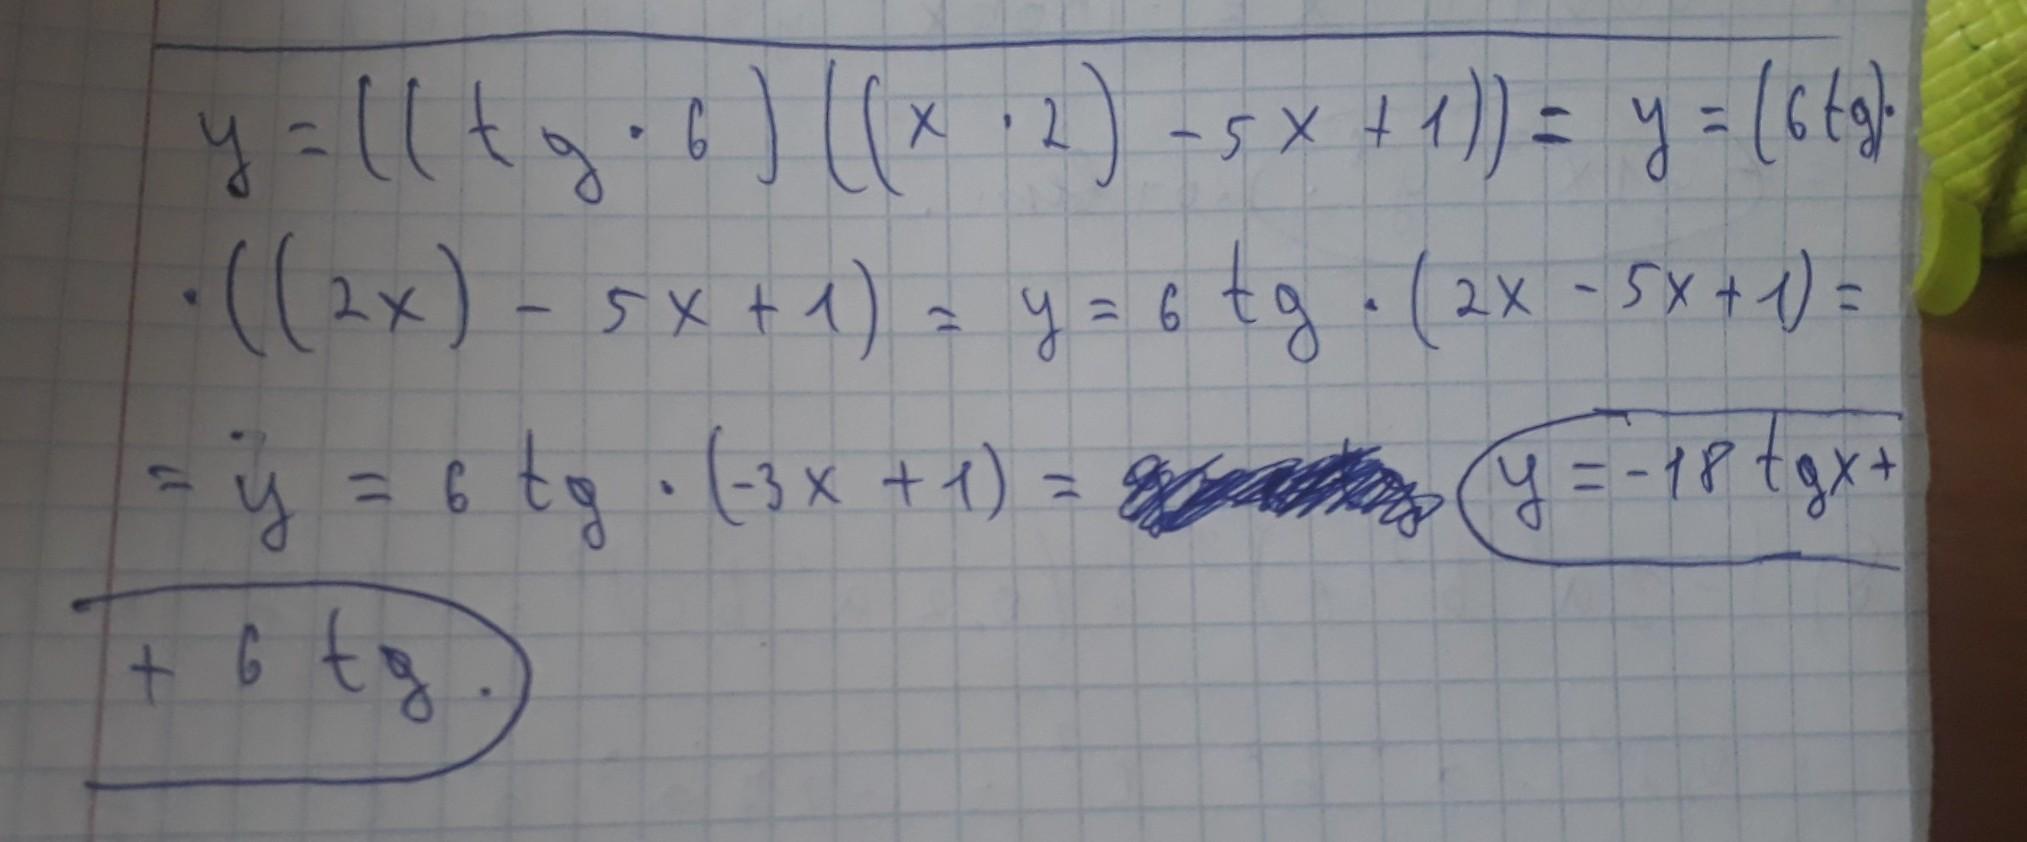 y = ((tg · 6)((x · 2) - 5x + 1)) = y = (6tg)·
·((2x) - 5x + 1) = y = 6 tg · (2x - 5x + 1) =
= y = 6 tg · (-3x + 1) = y = -18 tgx +
+ 6 tg.